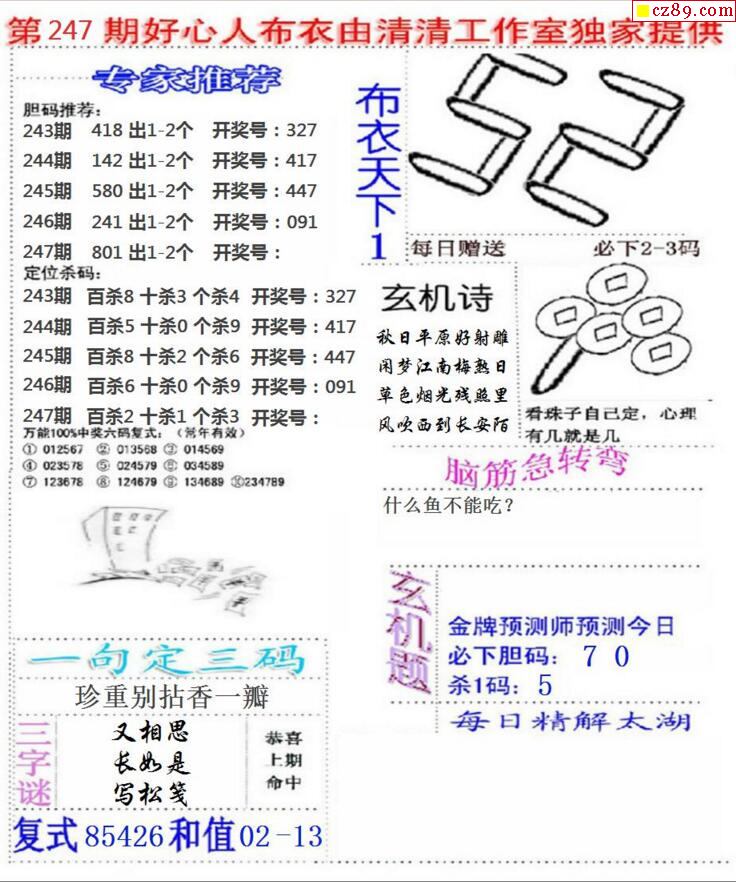 cz89.com
第247期好心人布衣由清清工作室独家提供
专家推荐
胆码推荐：
243期 418 出1-2个 开奖号：327
244期 142 出1-2个 开奖号：417
245期 580 出1-2个 开奖号：447
246期 241 出1-2个 开奖号：091
247期 801 出1-2个 开奖号：
定位杀码：
243期 百杀8 十杀3 个杀4 开奖号：327
244期 百杀5 十杀0 个杀9 开奖号：417
245期 百杀8 十杀2 个杀6 开奖号：447
246期 百杀6 十杀0 个杀9 开奖号：091
247期 百杀2 十杀1 个杀3 开奖号：
万能100%中奖六码复式：（常年有效）
① 012567 ② 013568 ③ 014569
④ 023578 ⑤ 024579 ⑥ 034589
⑦ 123678 ⑧ 124679 ⑨ 134689 ⑩234789
一句定三码
珍重别拈香一瓣
三字谜
又相思
长如是
写松笺
恭喜
上期
命中
复式85426和值02-13
布衣天下1
每日赠送 必下2-3码
玄机诗
秋日平原好射雕
闲梦江南梅熟日
草色烟光残照里
风吹西到长安陌
看珠子自己定，心理
有几就是几
脑筋急转弯
什么鱼不能吃？
玄机题
金牌预测师预测今日
必下胆码： 7 0
杀1码： 5
每日精解太湖